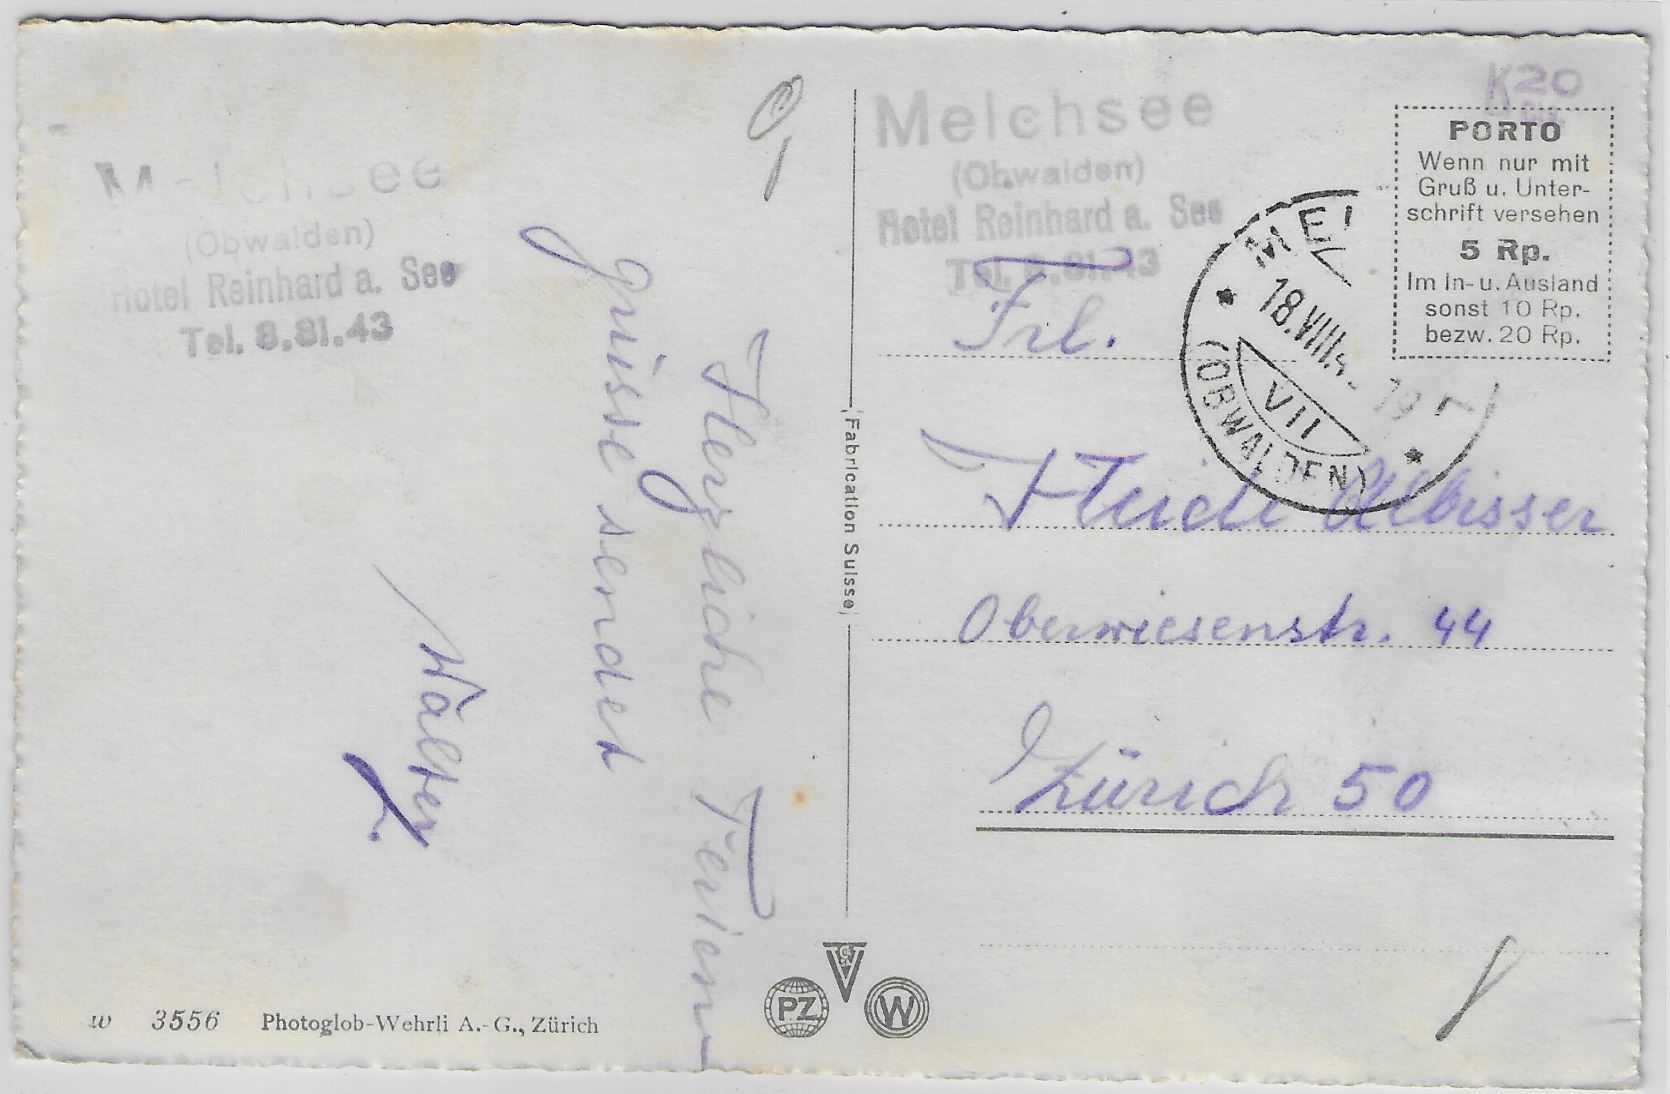 Melchsee
(Obwalden)
Hotel Reinhard a. See
Tel. 8.81.43
Herzliche Ferien
grüsse sendet
Walter
w 3556 Photoglob-Wehrli A.-G., Zürich
Fabrication Suisse
PZ
W
Melchsee
(Obwalden)
Hotel Reinhard a. See
Tel. 8.81.43
K20
PORTO
Wenn nur mit
Gruß u. Unter-
schrift versehen
5 Rp.
Im In- u. Ausland
sonst 10 Rp.
bezw. 20 Rp.
18.VIII
VII
(OBWALDEN)
Frl.
Heidi Albisser
Oberwiesenstr. 44
Zürich 50